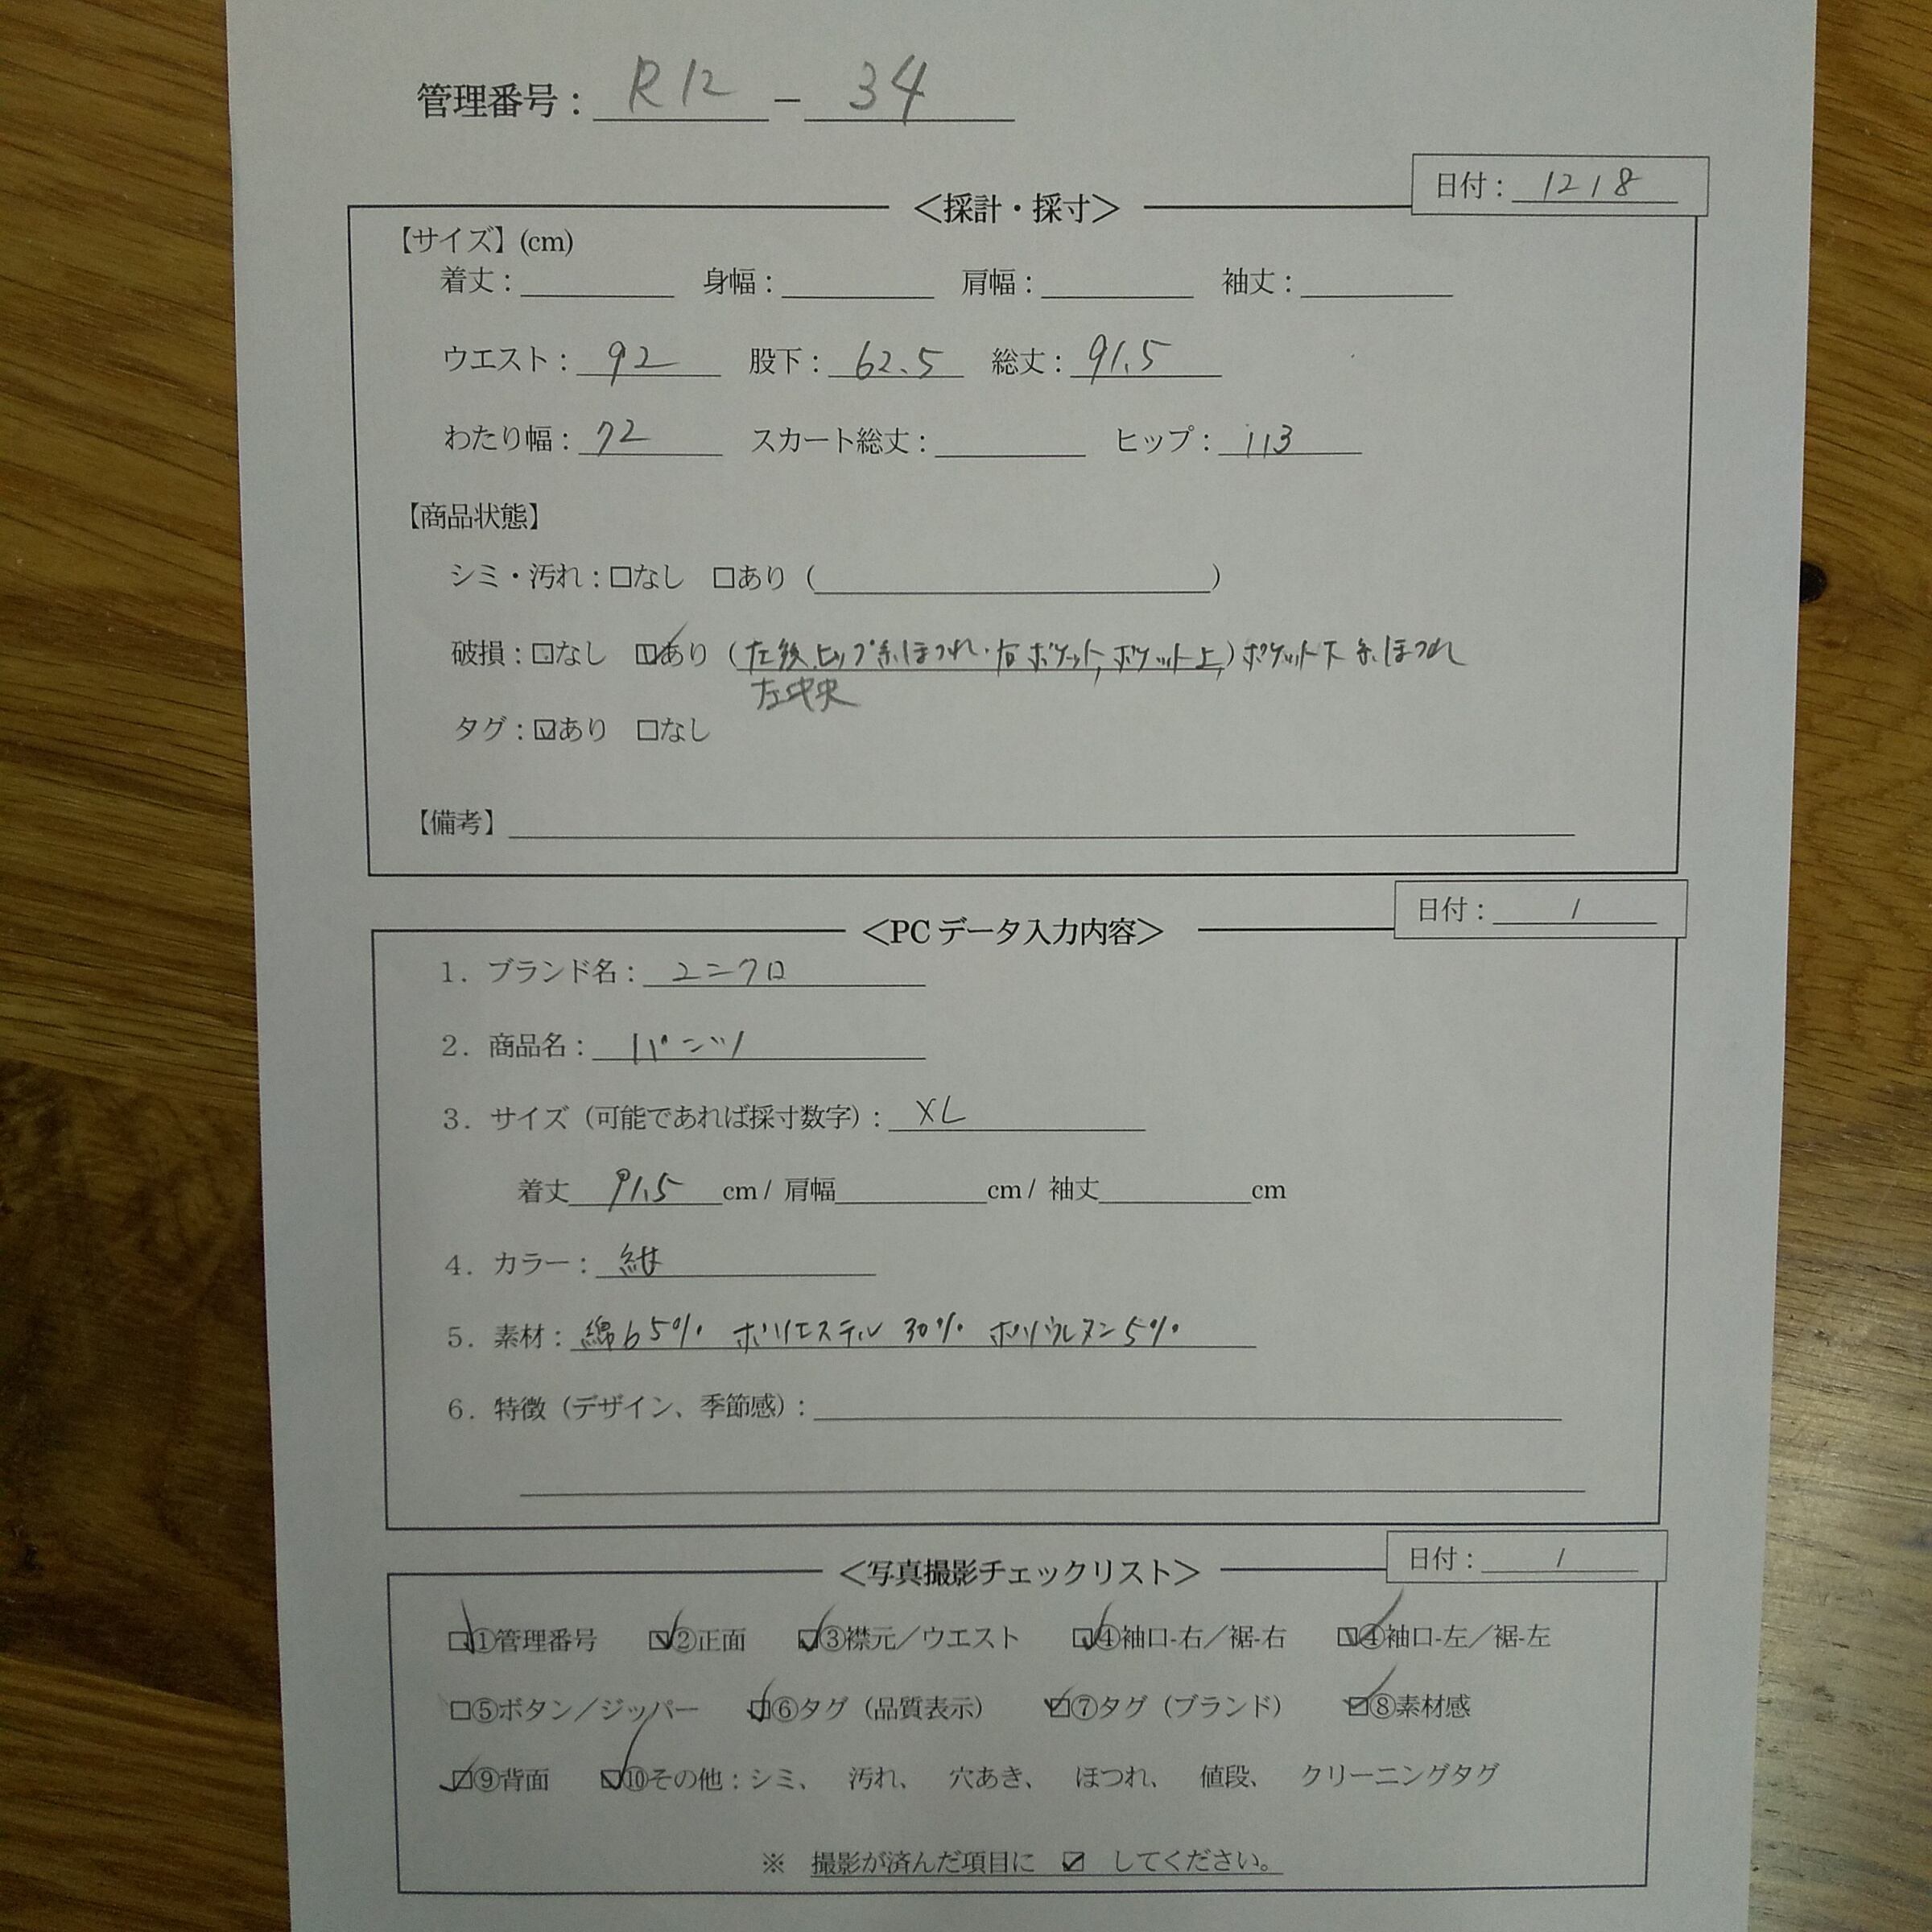 管理番号： R12 － 34
日付： 12/8
＜採計・採寸＞
【サイズ】(cm)
着丈： 身幅： 肩幅： 袖丈：
ウエスト： 92 股下： 62.5 総丈： 91.5
わたり幅： 72 スカート総丈： ヒップ： 113
【商品状態】
シミ・汚れ：□なし □あり（ ）
破損：□なし ☑あり（左後ヒップ糸ほつれ・右ポケット,ポケット上,）ポケット下 糸ほつれ
左中央
タグ：☑あり □なし
【備考】
日付： /
＜PC データ入力内容＞
1．ブランド名： ユニクロ
2．商品名： パンツ
3．サイズ（可能であれば採寸数字）： XL
着丈 91.5 cm / 肩幅 cm / 袖丈 cm
4．カラー： 紺
5．素材： 綿65% ポリエステル 30% ポリウレタン5%
6．特徴（デザイン、季節感）：
日付： /
＜写真撮影チェックリスト＞
☑①管理番号 ☑②正面 ☑③襟元／ウエスト ☑④袖口-右／裾-右 ☑④袖口-左／裾-左
□⑤ボタン／ジッパー ☑⑥タグ（品質表示） ☑⑦タグ（ブランド） ☑⑧素材感
☑⑨背面 ☑⑩その他：シミ、 汚れ、 穴あき、 ほつれ、 値段、 クリーニングタグ
※ 撮影が済んだ項目に ☑ してください。